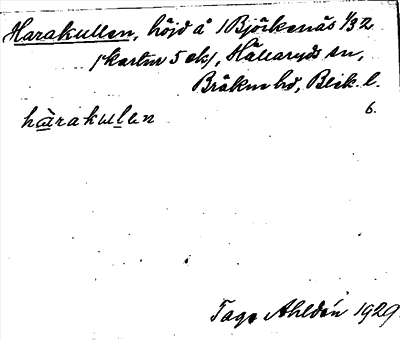 Harakullen, höjd å 1 Björkenäs 1/32
(kartbr 5 ek), Hällaryds sn,
Bräkne hd, Blek. l.
6.
hàrakulen
Tage Ahldén 1929.